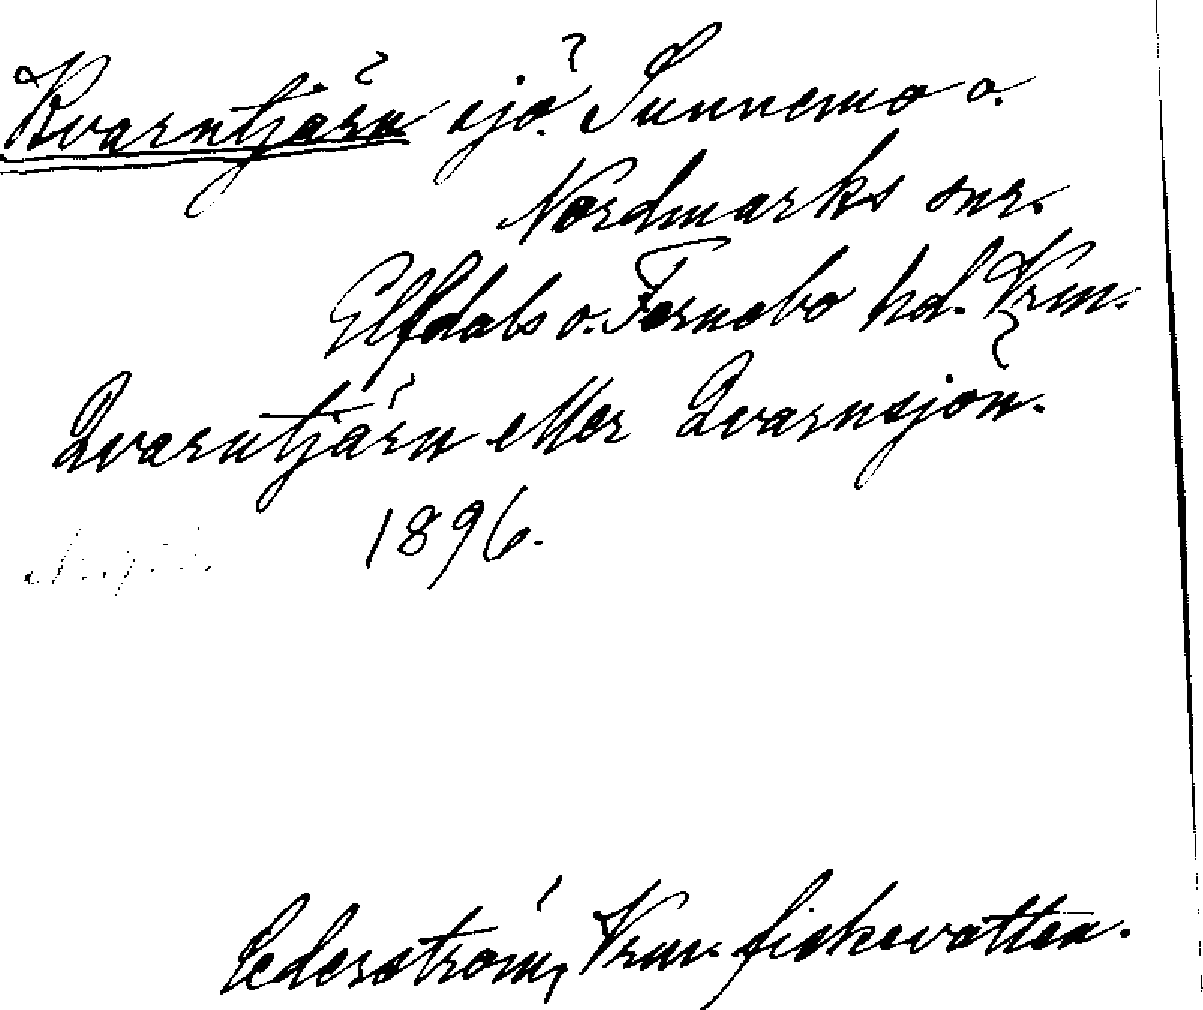 Kvarntjärn sjö. Sunnemo o.
Nordmarks snr.
Elfdals o. Fernebo hd. Vrm.
Qvarntjärn eller Qvarnsjön.
1896.
Cederström, Vrm. fiskevatten.